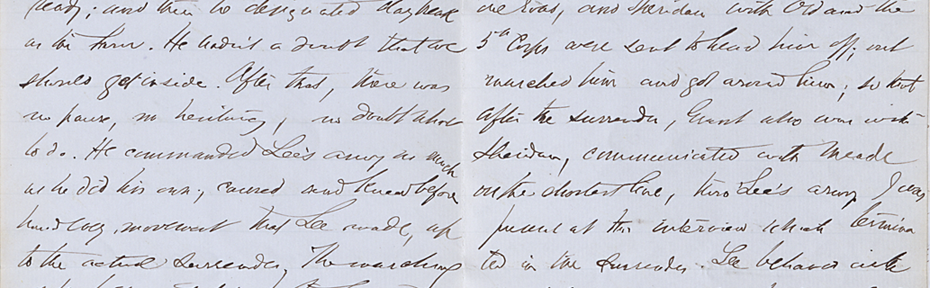 ready; and then he designated daybreak
as the hour. He hadn't a doubt that we
should get inside. After that, there was
no pause, no hesitancy, no doubt what
to do. He commanded Lee's army as much
as he did his own; caused and knew before
hand every movement that Lee made, up
to the actual surrender. The marching
the road, and Sheridan with Ord and the
5th Corps were sent to head him off; out
marched him and got around him; so that
after the surrender, Grant who was with
Sheridan, communicated with Meade
on the shortest line, thro' Lee's army. I was
present at the interview which termina
ted in the surrender. Lee behaved with